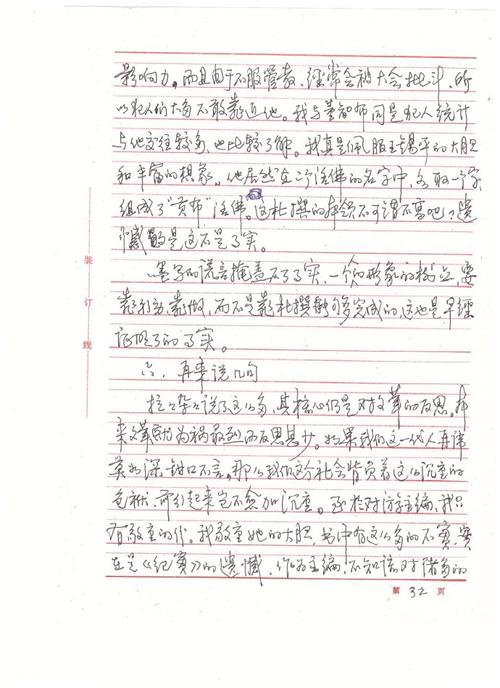 影响力。而且由于不服管教，经常会被大会批斗，所
以犯人们大多不敢靠近他。我与董智布同是犯人统计
与他交往较多，也比较了解。我真是佩服王锡平的大胆
和丰富的想象。他居然在二个法佛的名字中，各取一个字
组成了“贡布”法佛。这杜撰的本领不可谓不高吧！遗
憾的是这不是事实。
墨写的谎言掩盖不了事实，一个的形象的树立，要
靠 靠做，而不是靠杜撰能够完成的，这也是早经
证明了的事实。
六、再来说几句
拉拉杂杂说了这么多，其核心仍是对文革的反思。
来文革 为祸最烈而反思甚少。如果我们这一代人再讳
莫如深，钳口不言。那么我们这个社会背负着这么沉重的
包袱，前行起来岂不愈加沉重。至于对 主编，我只
有敬重的份。我敬重她的大胆，书中有这么多的不实，实
在是《纪实》的遗憾，作为主编，不知该对诸多的
装订线
第 32 页